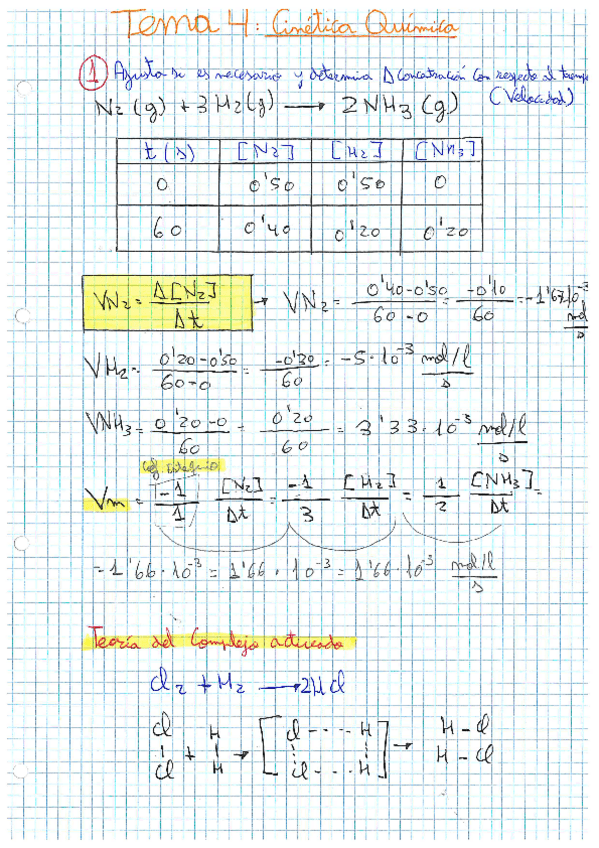 Tema 4: Cinética Química
① Ajusta si es necesario y determina Δ concentración con respecto al tiempo
N2 (g) + 3 H2 (g) → 2NH3 (g) (Velocidad)
t (s) [N2] [H2] [NH3]
0 0'50 0'50 0
60 0'40 0'20 0'20
VN2 = Δ[N2] / Δt → VN2 = 0'40-0'50 / 60-0 = -0'10 / 60 = -1'67·10^-3 mol / s
VH2 = 0'20-0'50 / 60-0 = -0'30 / 60 = -5·10^-3 mol/l / s
VNH3 = 0'20-0 / 60 = 0'20 / 60 = 3'33·10^-3 mol/l / s
Vm = -1 / 1 [N2] / Δt = -1 / 3 [H2] / Δt = 1 / 2 [NH3] / Δt =
= 1'66·10^-3 = 1'66·10^-3 = 1'66·10^-3 mol/l / s
Teoría del Complejo activado
Cl2 + H2 → 2HCl
Cl H Cl ---- H H - Cl
+ → [ ] →
Cl H Cl ---- H H - Cl